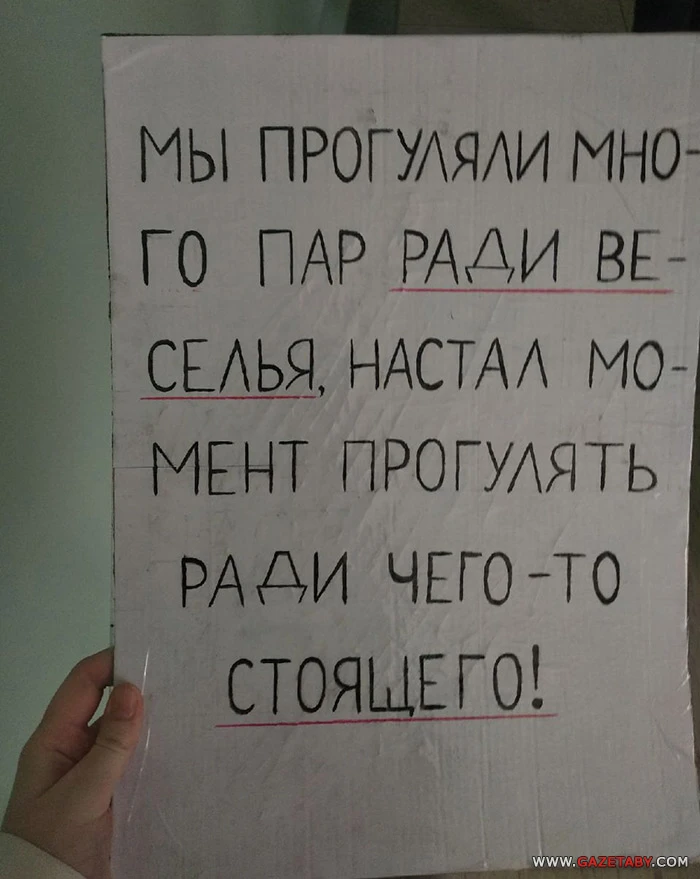 МЫ ПРОГУЛЯЛИ МНО-
ГО ПАР РАДИ ВЕ-
СЕЛЬЯ, НАСТАЛ МО-
МЕНТ ПРОГУЛЯТЬ
РАДИ ЧЕГО-ТО
СТОЯЩЕГО!
WWW.GAZETABY.COM